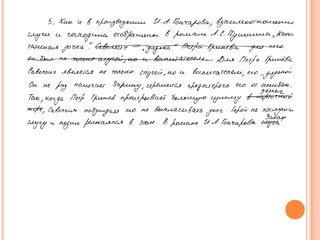 3. Как и в произведении И.А. Гончарова, взаимоотношения
слуги и господина отображены в романе А.С. Пушкина „Капи-
танская дочка". Савельич - „дядька" Петра Гринева для него
он был не только слугой, но и воспитателем. Для Петра Гринева
Савельич являлся не только слугой, но и воспитателем, его „дядькой"
Он не раз помогает барину, стремился предостеречь его от ошибок.
Так, когда Петр Гринев проигрывает большую сумму денег в карточной
игре, Савельич побуждает его не выплачивать долг. Герой не послушал
слугу и позднее раскаялся в этом. В романе И.А. Гончарова слуга Захар